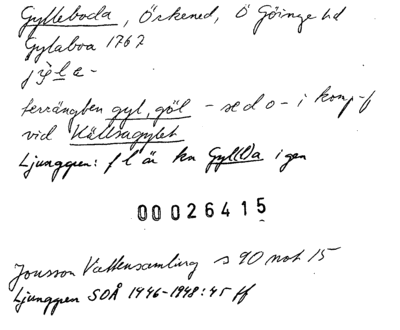 Gylleboda, Örkened, Ö Göinge hd
Gylaboa 1767
terrängben gyl, göl - se d o - i komp-f
vid Källsagylet
Ljunggren: f l är kn Gyl(l)a igen
00026415
Jonsson Vattensamling s 90 not 15
Ljunggren SOÅ 1946-1948:45 ff